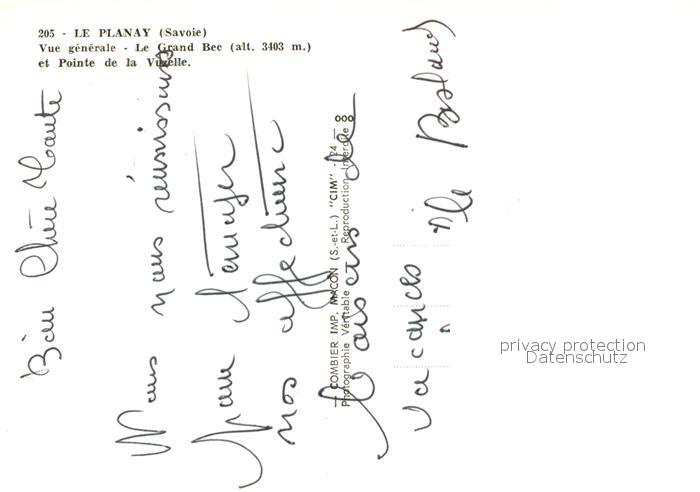 205 - LE PLANAY (Savoie)
Vue générale - Le Grand Bec (alt. 3403 m.)
et Pointe de la Vuzelle.
Bien Chère
Nous nous réunissons
pour t'envoyer
nos affectueux
de
vacances
COMBIER IMP. MACON (S.-et-L.) "CIM" - 24 -
Photographie Véritable - Reproduction Interdite
privacy protection
Datenschutz